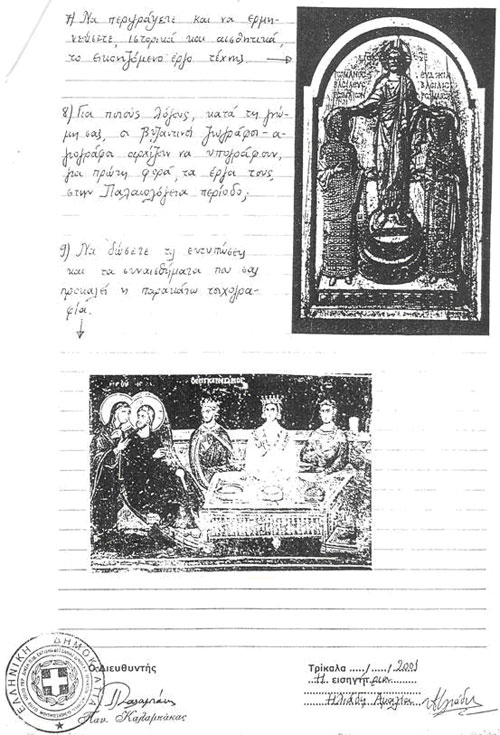 7) Να περιγράψετε και να ερμη-
νεύσετε, ιστορικά και αισθητικά,
το εικονιζόμενο έργο τέχνης.
8) Για ποιούς λόγους, κατά τη γνώ-
μη σας, οι βυζαντινοί ζωγράφοι-α-
γιογράφοι αρχίζουν να υπογράφουν,
για πρώτη φορά, τα έργα τους,
στην Παλαιολόγεια περίοδο;
9) Να δώσετε τις εντυπώσεις
και τα συναισθήματα που σας
προκαλεί η παρακάτω τοιχογρα-
φία.
ΕΛΛΗΝΙΚΗ ΔΗΜΟΚΡΑΤΙΑ
Ο Διευθυντής
Παν. Καλαμπάκας
Τρίκαλα ..../..../ 2001
Η εισηγήτρια